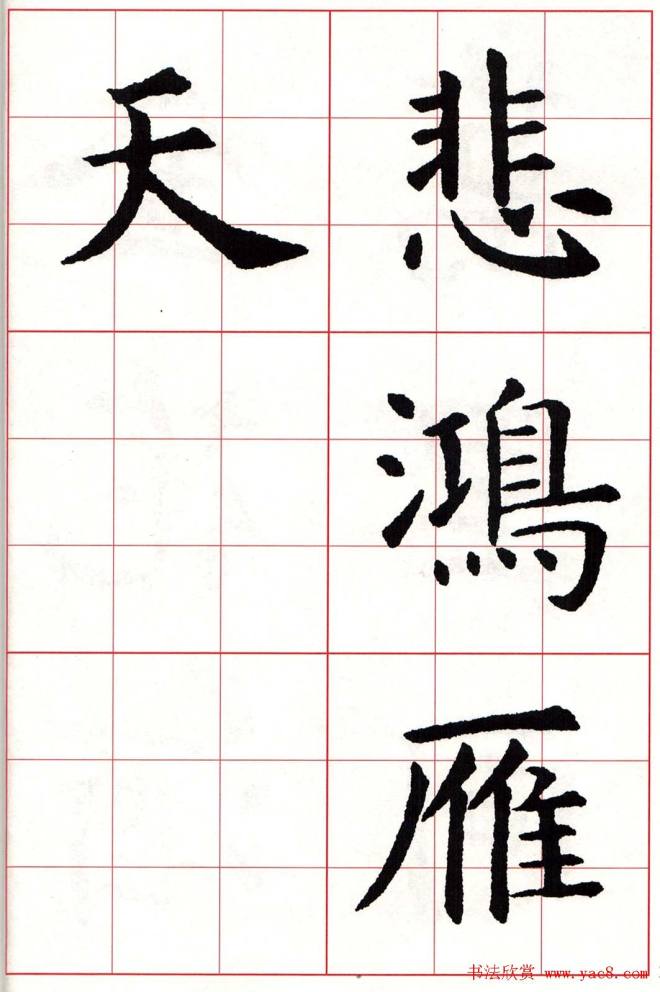 悲鴻雁
天
书法欣赏 www.yac8.com